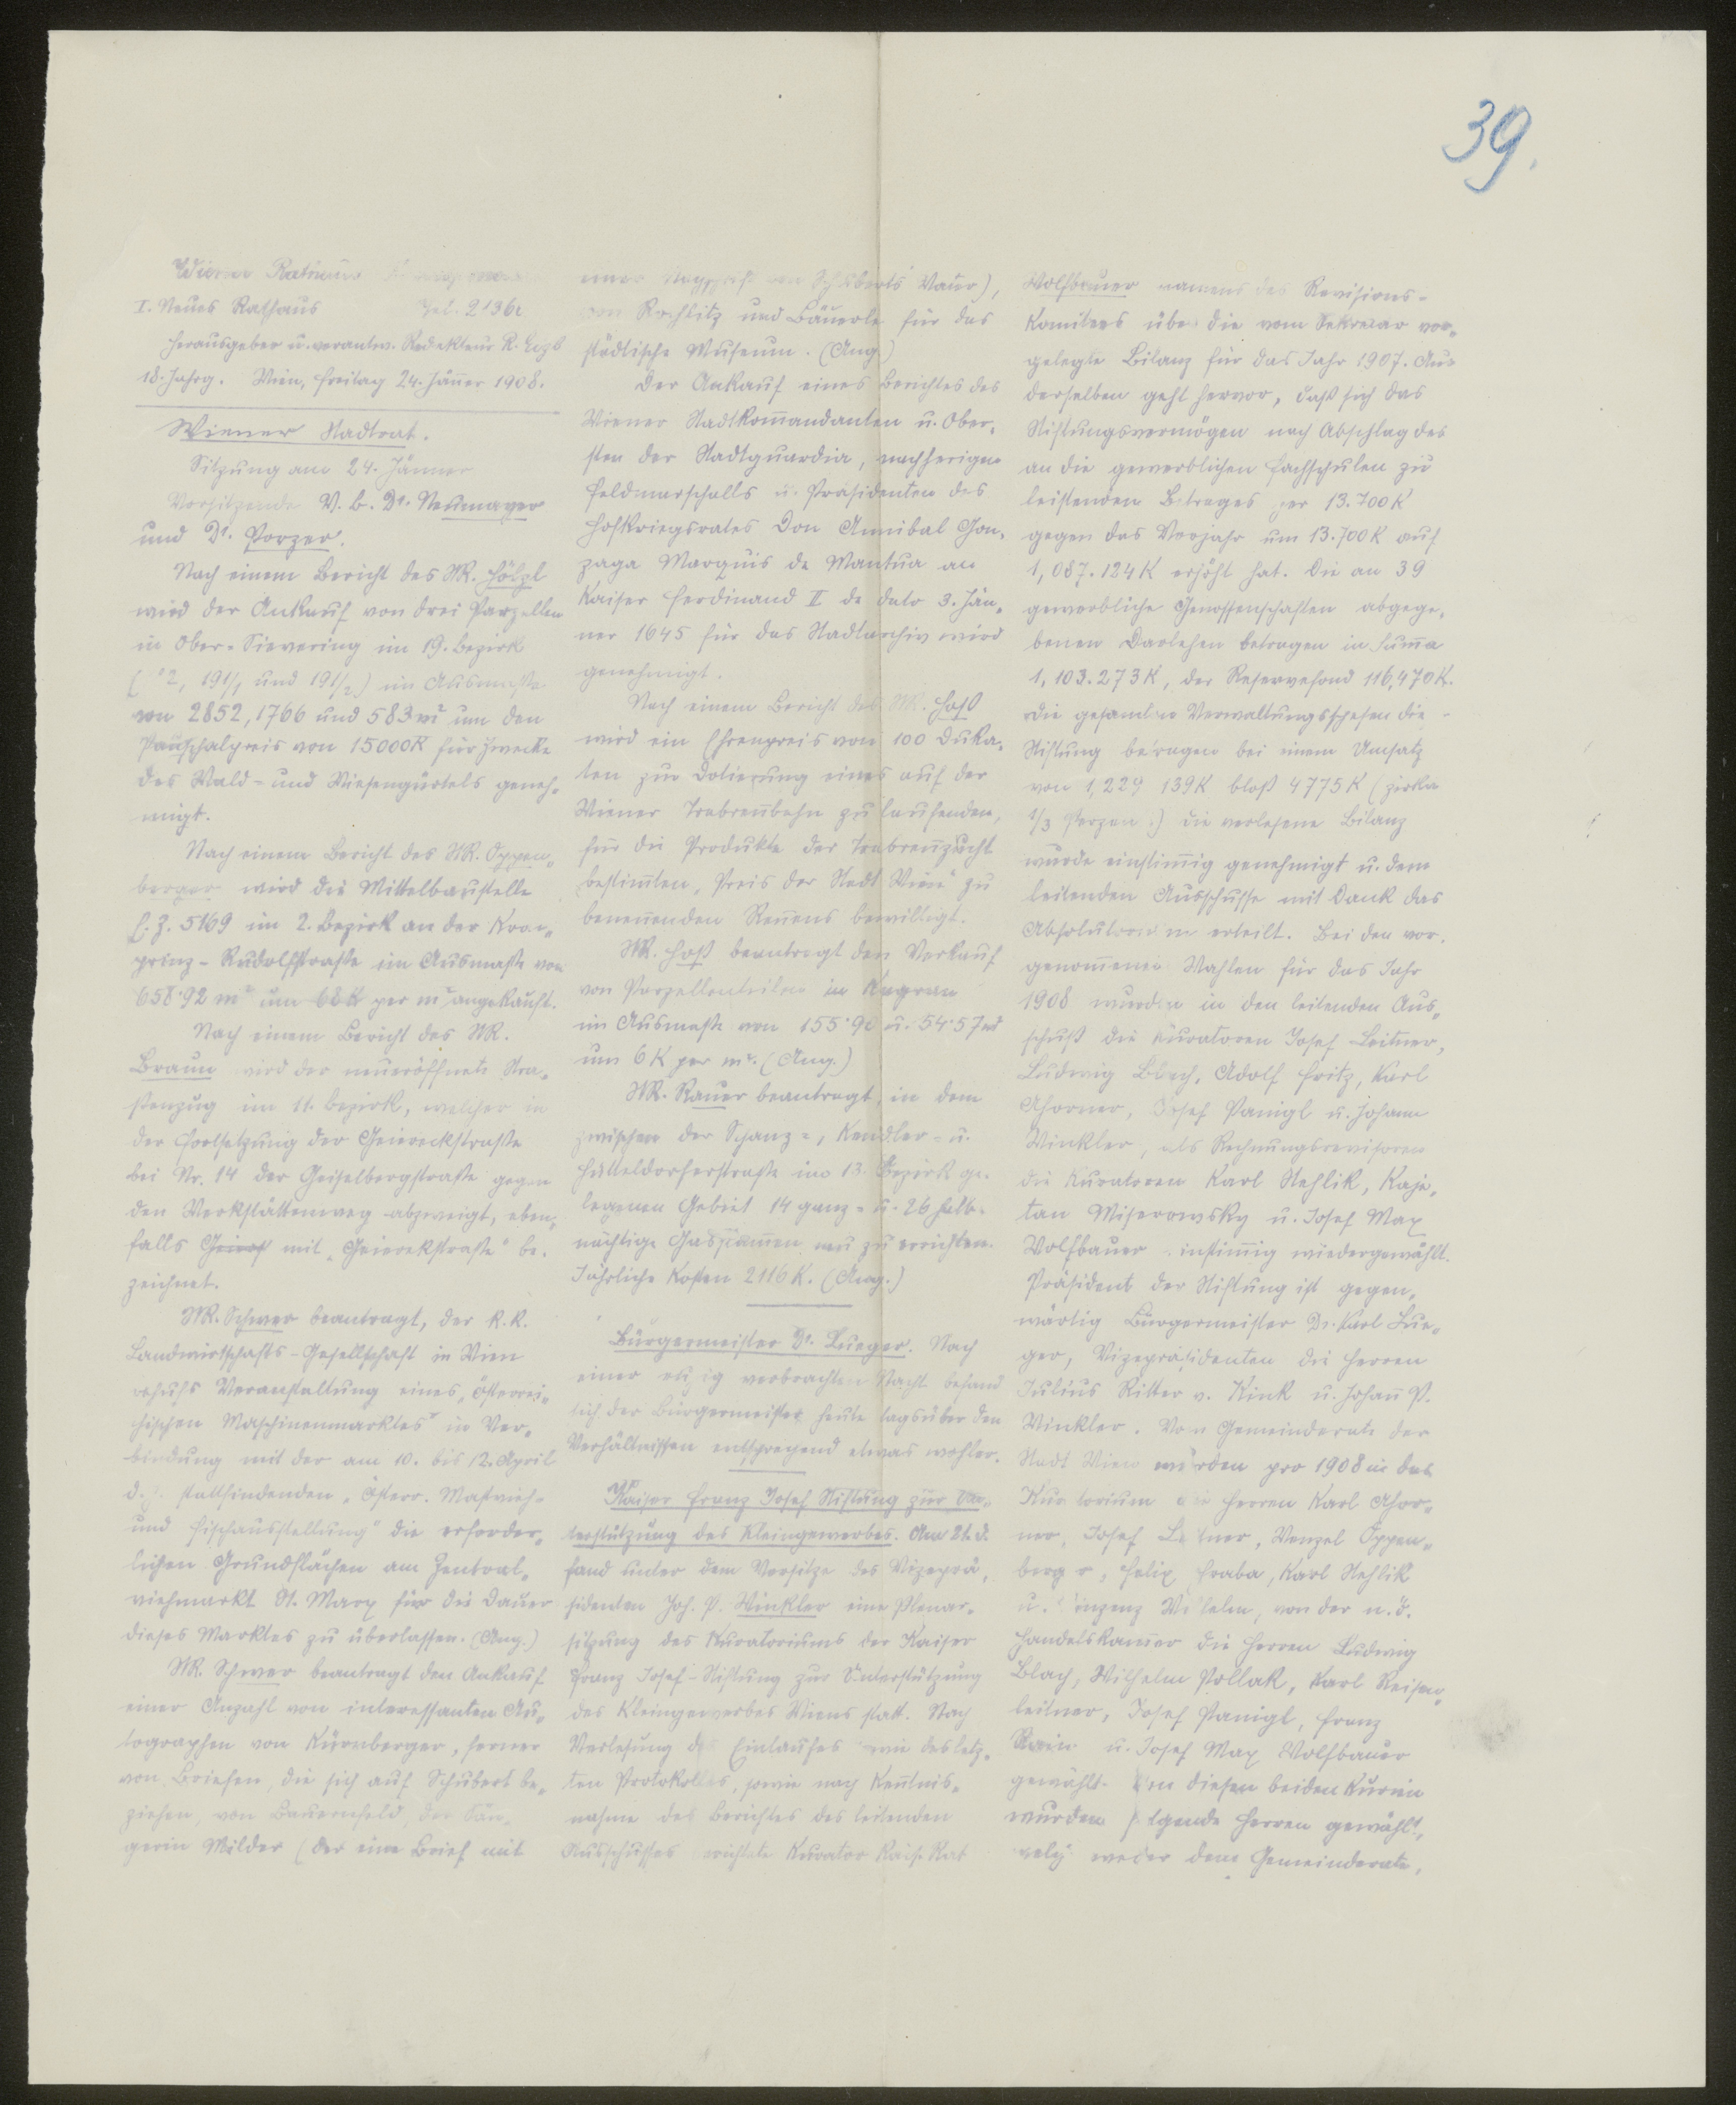 39.
Wiener Rathaus
I. Neues Rathaus Tel. 2136
Herausgeber u. verantw. Redakteur R.
18. Jahrg. Wien, Freitag 24. Jänner 1908.
Wiener Stadtrat.
Sitzung am 24. Jänner
Vorsitzende V. B. Dr. Neumayer
und Dr. Porzer.
Nach einem Bericht des StR. Hölzl
wird der Ankauf von drei Parzellen
in Ober-Sievering im 19. Bezirk
( 2, 191/1 und 191/2) im Ausmaße
von 2852, 1766 und 583 m² um den
Pauschalpreis von 15000 K für Zwecke
des Wald- und Wiesengürtels geneh-
migt.
Nach einem Bericht des StR. Oppen-
berger wird die Mittelbaustelle
E. Z. 5169 im 2. Bezirk an der Kron-
prinz-Rudolfstraße im Ausmaße von
658·92 m² um 68 K per m² angekauft.
Nach einem Bericht des StR.
Braun wird der neueröffnete Stra-
ßenzug im 11. Bezirk, welcher in
der Fortsetzung der Geiereckstraße
bei Nr. 14 der Geiselbergstraße gegen
den Werkstättenweg abzweigt, eben-
falls mit „Geiereckstraße" be-
zeichnet.
StR. Schwer beantragt, der k. k.
Landwirtschafts-Gesellschaft in Wien
behufs Veranstaltung eines „österrei-
chischen Maschinenmarktes" in Ver-
bindung mit der am 10. bis 12. April
d. J. stattfindenden „Österr. Mastvieh-
und Fischausstellung" die erforder-
lichen Grundflächen am Zentral-
viehmarkt St. Marx für die Dauer
dieses Marktes zu überlassen. (Ang.)
StR. Schwer beantragt den Ankauf
einer Anzahl von interessanten Au-
tographen von Kürnberger, ferner
von Briefen, die sich auf Schubert be-
ziehen, von Bauernfeld, der Sän-
gerin Milder (der eine Brief mit
einer von Schuberts Vater),
von Rochlitz und Bäuerle für das
städtische Museum. (Ang.)
Der Ankauf eines Berichtes des
Wiener Stadtkommandanten u. Ober-
sten der Stadtguardia, nachherigen
Feldmarschalls u. Präsidenten des
Hofkriegsrates Don Annibal Gon-
zaga Marquis de Mantua an
Kaiser Ferdinand II de dato 3. Jän-
ner 1645 für das Stadtarchiv wird
genehmigt.
Nach einem Bericht des StR. Hoß
wird ein Ehrenpreis von 100 Duka-
ten zur Dotierung eines auf der
Wiener Trabrennbahn zu laufenden,
für die Produkte der Trabrennzucht
bestimmten, Preis der Stadt Wien" zu
benennenden Rennens bewilligt.
StR. Hoß beantragt den Verkauf
von Parzellenteilen in Kagran
im Ausmaße von 155·90 u. 54·57 m²
um 6 K per m². (Ang.)
StR. Rauer beantragt, in dem
zwischen der Schanz-, Kendler- u.
Hütteldorferstraße im 13. Bezirk ge-
legenen Gebiet 14 ganz- u. 26 halb-
nächtige Gasflammen neu zu errichten.
Jährliche Kosten 2116 K. (Ang.)
Bürgermeister Dr. Lueger. Nach
einer ruhig verbrachten Nacht befand
sich der Bürgermeister heute tagsüber den
Verhältnissen entsprechend etwas wohler.
Kaiser Franz Josef Stiftung zur Un-
terstützung des Kleingewerbes. Am 21. d.
fand unter dem Vorsitze des Vizeprä-
sidenten Joh. P. Winkler eine Plenar-
sitzung des Kuratoriums der Kaiser
Franz Josef-Stiftung zur Unterstützung
des Kleingewerbes Wiens statt. Nach
Verlesung des Einlaufes wie des letz-
ten Protokolles, sowie nach Kenntnis-
nahme des Berichtes des leitenden
Ausschusses erichtete Kurator Kais. Rat
Wolfbauer namens des Revisions-
Komitees über die vom Sekretär vor-
gelegte Bilanz für das Jahr 1907. Aus
derselben geht hervor, daß sich das
Stiftungsvermögen nach Abschlag des
an die gewerblichen Fachschulen zu
leistenden Betrages per 13.700 K
gegen das Vorjahr um 13.700 K auf
1,087.124 K erhöht hat. Die an 39
gewerbliche Genossenschaften abgege-
benen Darlehen betragen in Summa
1,103.273 K, der Reservefond 116,470 K.
Die gesamten Verwaltungsspesen die
Stiftung betragen bei einem Umsatz
von 1,229 139 K bloß 4775 K (zirka
1/3 Perzen .) Die verlesene Bilanz
wurde einstimmig genehmigt u. dem
leitenden Ausschusse mit Dank das
Absolutorium erteilt. Bei den vor-
genommenen Wahlen für das Jahr
1908 wurden in den leitenden Aus-
schuß die Kuratoren Josef Leitner,
Ludwig Blach, Adolf Fritz, Karl
Ahorner, Josef Panigl u. Johann
Winkler, als Rechnungsrevisoren
die Kuratoren Karl Stehlik, Kaje-
tan Miserowsky u. Josef Max
Wolfbauer einstimmig wiedergewählt.
Präsident der Stiftung ist gegen-
wärtig Bürgermeister Dr. Karl Lue-
ger, Vizepräsidenten die Herren
Julius Ritter v. Kink u. Johann P.
Winkler. Vom Gemeinderate der
Stadt Wien wurden pro 1908 in das
Kuratorium die Herren Karl Ahor-
ner, Josef Leitner, Wenzel Oppen-
berger, Felix Hraba, Karl Stehlik
u. Vinzenz Wilhelm, von der n. ö.
Handelskammer die Herren Ludwig
Blach, Wilhelm Pollak, Karl Reisen-
leitner, Josef Panigl, Franz
Rain u. Josef Max Wolfbauer
gewählt. Von diesen beiden Kurien
wurden folgende Herren gewählt,
welche weder dem Gemeinderate,